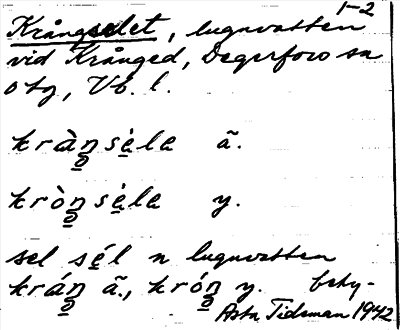 1-2
Krångselet, lugnvatten
vid Krånged, Degerfors sn
o tg, Vb. l.
kràŋ̥sèla ã.
kròŋ̥sèla y.
sel sél n lugnvatten
kráŋ̥ ã., króŋ̥ y. bety-
Asta Tideman 1942